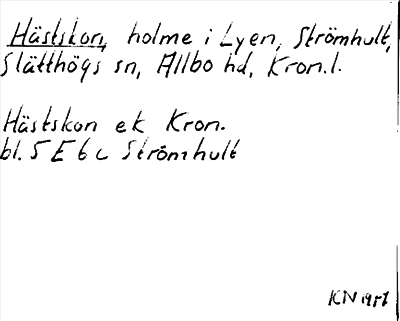 Hästskon, holme i Lyen, Strömhult,
Slätthögs sn, Allbo hd, Kron.l.
Hästskon ek Kron.
bl. 5 E 6 c Strömhult
KN